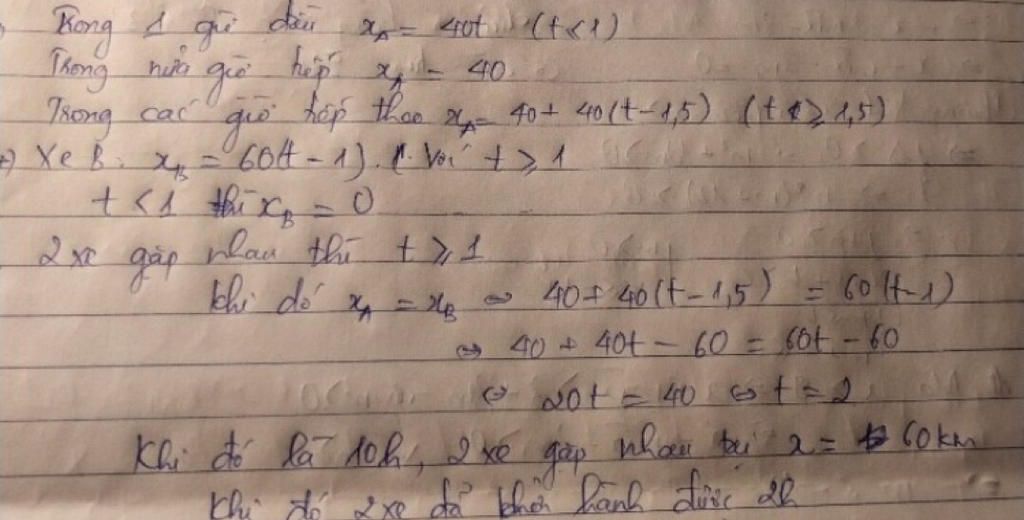 Trong 1 giờ đầu x_A = 40t (t<1)
Trong nửa giờ tiếp x_A = 40
Trong các giờ tiếp theo x_A = 40 + 40(t-1,5) (t ≥ 1,5)
+) Xe B: x_B = 60(t-1). Với t ≥ 1
t < 1 thì x_B = 0
2 xe gặp nhau thì t ≥ 1
khi đó x_A = x_B ⇔ 40 + 40(t-1,5) = 60(t-1)
⇔ 40 + 40t - 60 = 60t - 60
⇔ 20t = 40 ⇔ t = 2
Khi đó là 10h, 2 xe gặp nhau tại x = 60km
Khi đó 2 xe đã khởi hành được 2h